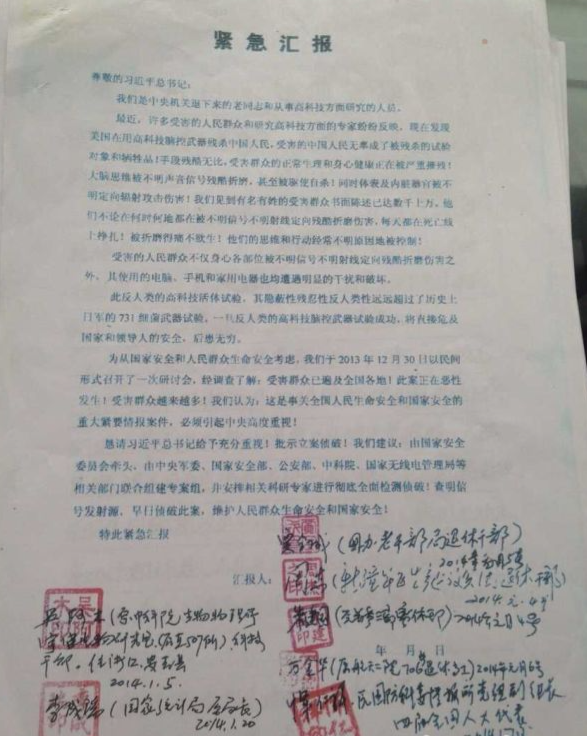 紧急汇报
尊敬的习近平总书记：
我们是中央机关退下来的老同志和从事高科技方面研究的人员。
最近，许多受害的人民群众和研究高科技方面的专家纷纷反映，现在发现
美国在用高科技脑控武器残杀中国人民，受害的中国人民无辜成了被残杀的试验
对象和牺牲品！手段残酷无比，受害群众的正常生理和身心健康正在被严重摧残！
大脑思维被不明声音信号残酷折磨，甚至被驱使自杀！同时体表及内脏器官被不
明定向辐射攻击伤害！我们见到有名有姓的受害群众书面陈述已达数千上万。他
们不论在何时何地都在被不明信号不明射线定向残酷折磨伤害，每天都在死亡线
上挣扎！被折磨得痛不欲生！他们的思维和行动经常不明原因地被控制！
受害的人民群众不仅身心各部位被不明信号不明射线定向残酷折磨伤害之
外，其使用的电脑、手机和家用电器也均遭遇明显的干扰和破坏。
此反人类的高科技活体试验，其隐蔽性残忍性反人类性远远超过了历史上
日军的731细菌武器试验，一旦反人类的高科技脑控武器试验成功，将直接危及
国家和领导人的安全，后患无穷。
为从国家安全和人民群众生命安全考虑，我们于2013年12月30日以民间
形式召开了一次研讨会，经调查了解：受害群众已遍及全国各地！此案正在恶性
发生！受害群众越来越多！我们认为：这是事关全国人民生命安全和国家安全的
重大紧要情报案件，必须引起中央高度重视！
恳请习近平总书记给予充分重视！批示立案侦破！我们建议：由国家安全
委员会牵头、由中央军委、国家安全部、公安部、中科院、国家无线电管理局等
相关部门联合组建专案组，并安排相关科研专家进行彻底全面检测侦破！查明信
号发射源，早日侦破此案，维护人民群众生命安全和国家安全！
特此紧急汇报
(国办老干部局退休干部)
2014年元月5号
汇报人：
2014.元.4号
2014年元月4号
干部。
2014.1.5.
年 月 日
2014年元月6号
(国家统计局
2014.1.20
四届全国人大代表